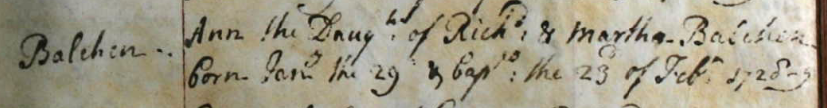 Balchen -.
Ann the Daugh.r of Rich.d & Martha Balchen
born Jan.y the 29 & bap.d: the 23 of Feb.y 1728-9